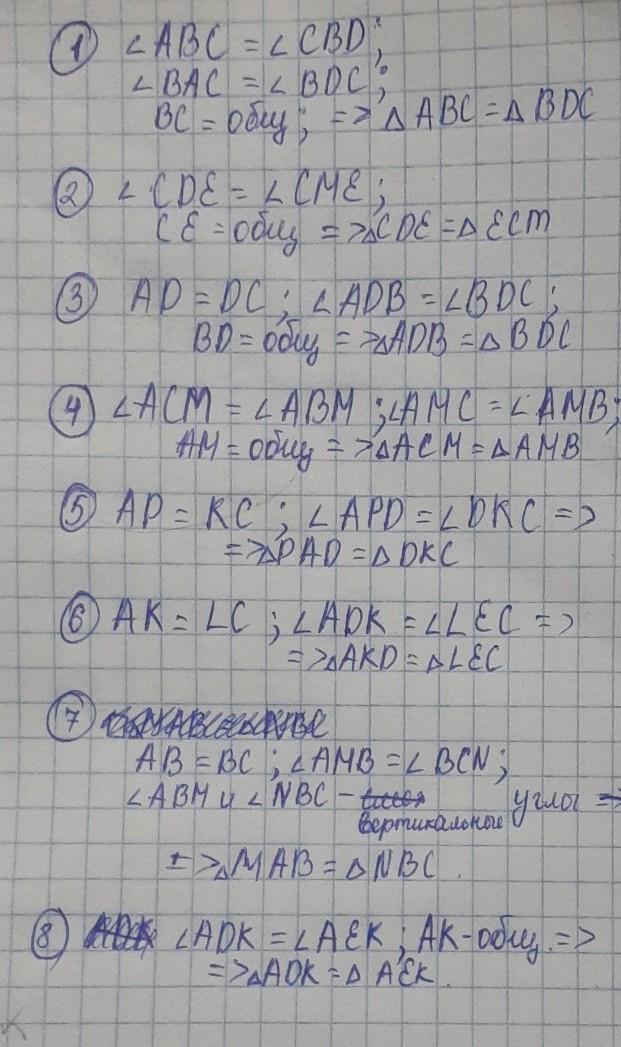 ① ∠ABC = ∠CBD;
∠BAC = ∠BDC;
BC = общ; => △ABC = △BDC
② ∠CDE = ∠CME;
CE = общ => △CDE = △ECM
③ AD = DC; ∠ADB = ∠BDC;
BD = общ => △ADB = △BDC
④ ∠ACM = ∠ABM; ∠AMC = ∠AMB;
AM = общ => △ACM = △AMB
⑤ AP = KC; ∠APD = ∠DKC =>
=> △PAD = △DKC
⑥ AK = LC; ∠ADK = ∠LEC =>
=> △AKD = △LEC
⑦
AB = BC; ∠AMB = ∠BCN;
∠ABM и ∠NBC - вертикальные углы =>
=> △MAB = △NBC.
⑧ ∠ADK = ∠AEK; AK - общ. =>
=> △ADK = △AEK.